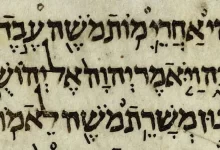 הִי אַחֲרֵי מוֹת מֹשֶׁה עֶבֶד
וַיֹּאמֶר יְהוָה אֶל יְהוֹשֻׁ
נוּן מְשָׁרֵת מֹשֶׁה לֵאמֹ